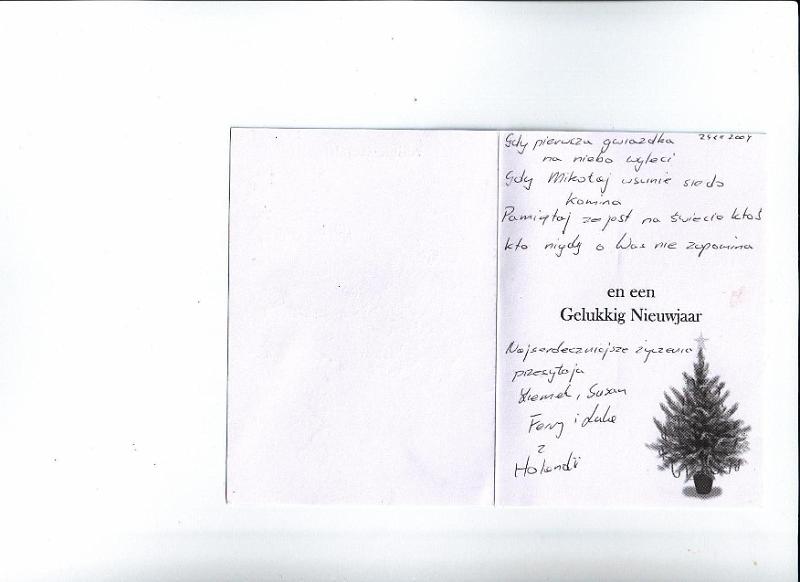 Gdy pierwsza gwiazdka
na niebo wyleci
Gdy Mikołaj wsunie się do
komina
Pamiętaj że jest na świecie ktoś
kto nigdy o Was nie zapomina
en een
Gelukkig Nieuwjaar
Najserdeczniejsze życzenia
przesyłają
Susan
i Luke
z
Holandii